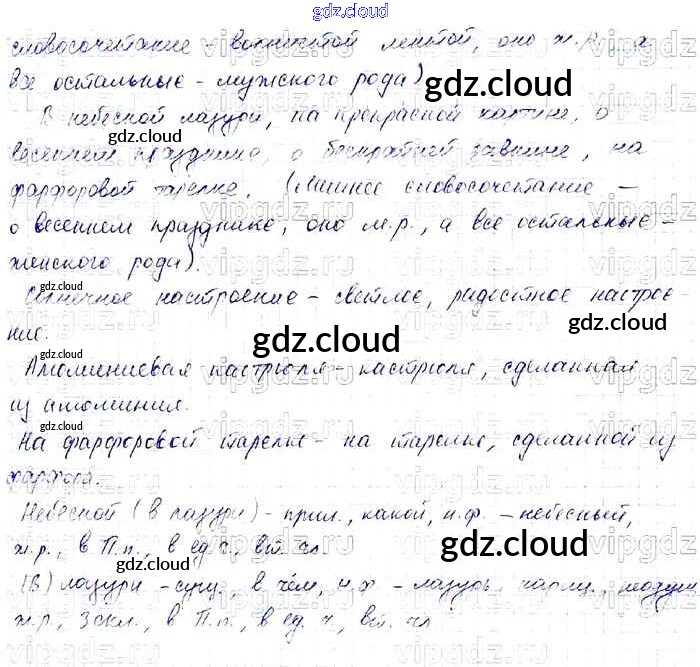 gdz.cloud
словосочетание - волнистой лентой, оно ж.р., а
все остальные - мужского рода)
gdz.cloud
В небесной лазури, на прекрасной картине, о
gdz.cloud
весеннем празднике, о бескрайней, на
фарфоровой тарелке. (Лишнее словосочетание -
о весеннем празднике, оно м.р., а все остальные -
женского рода).
Солнечное настроение - светлое, радостное настрое-
ние.
gdz.cloud
Алюминиевая кастрюля - кастрюля, сделанная
из алюминия.
На фарфоровой тарелке - на тарелке, сделанной из
фарфора.
Небесной (в лазури) - прил., какой, н.ф. - небесный,
ж.р., в П.п., в ед.ч., вт. чл.
(В) лазури - сущ., в чём, н.ф. - лазурь, нариц., неодуш
ж.р., 3 скл., в П.п., в ед.ч., вт. чл.